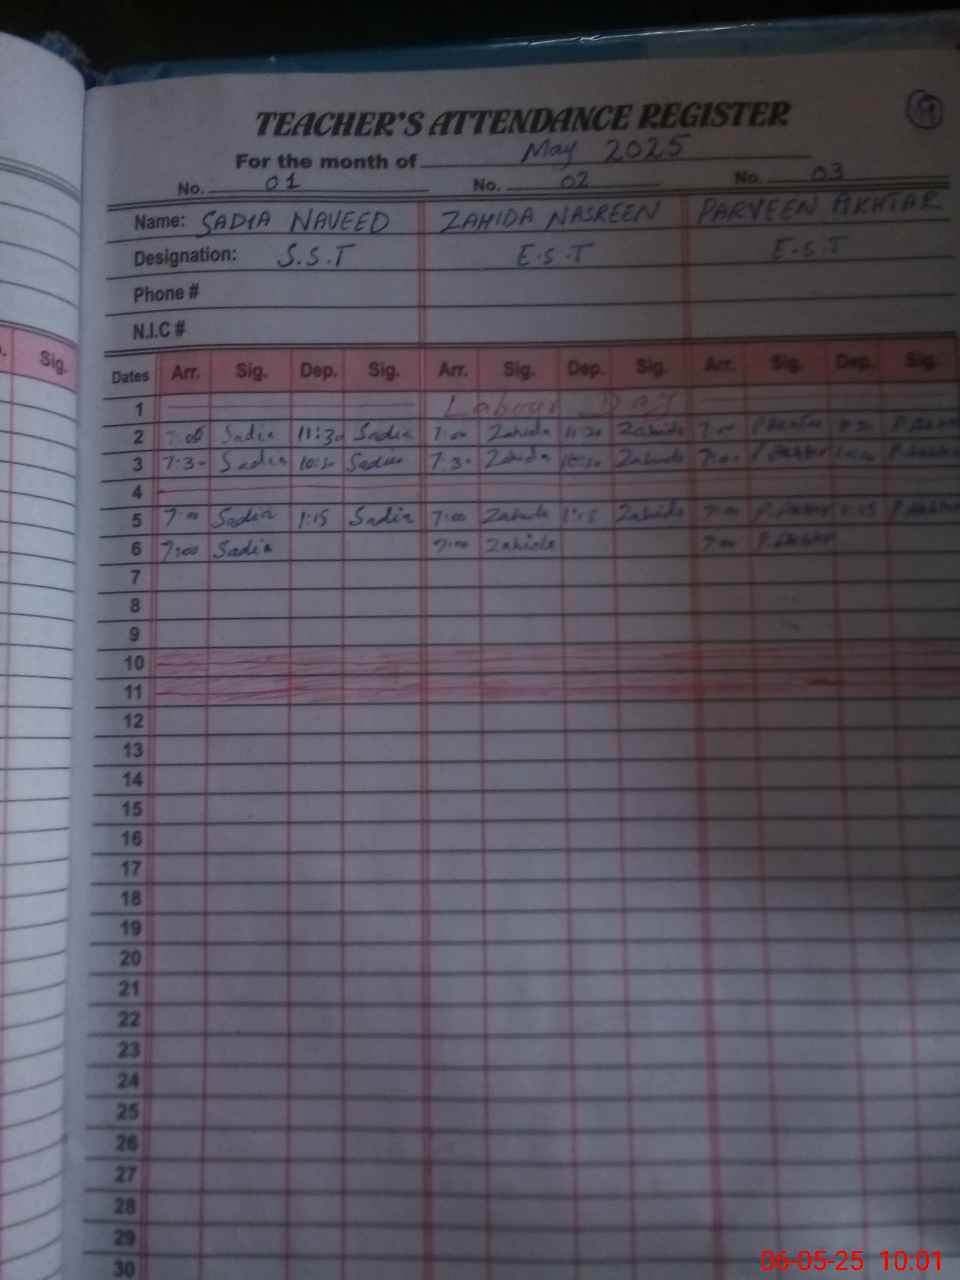 19
TEACHER'S ATTENDANCE REGISTER
For the month of May 2025
No. 01 No. 02 No. 03
Name: SADIA NAVEED ZAHIDA NASREEN PARVEEN AKHTAR
Designation: S.S.T E.S.T E.S.T
Phone #
N.I.C #
Sig.
Dates Arr. Sig. Dep. Sig. Arr. Sig. Dep. Sig. Arr. Sig. Dep. Sig.
1 Labour Day
2 7:00 Sadia 11:30 Sadia 7:00 Zahida 11:30 Zahida 7:00
3 7:30 Sadia 10:30 Sadia 7:30 Zahida 10:30 Zahida
4
5 7:00 Sadia 1:15 Sadia 7:00 Zahida 1:15 Zahida 7:00 P.Akhtar 1:15 P.Akhtar
6 7:00 Sadia 7:00 Zahida 7:00 P.Akhtar
7
8
9
10
11
12
13
14
15
16
17
18
19
20
21
22
23
24
25
26
27
28
29
30
06-05-25 10:01